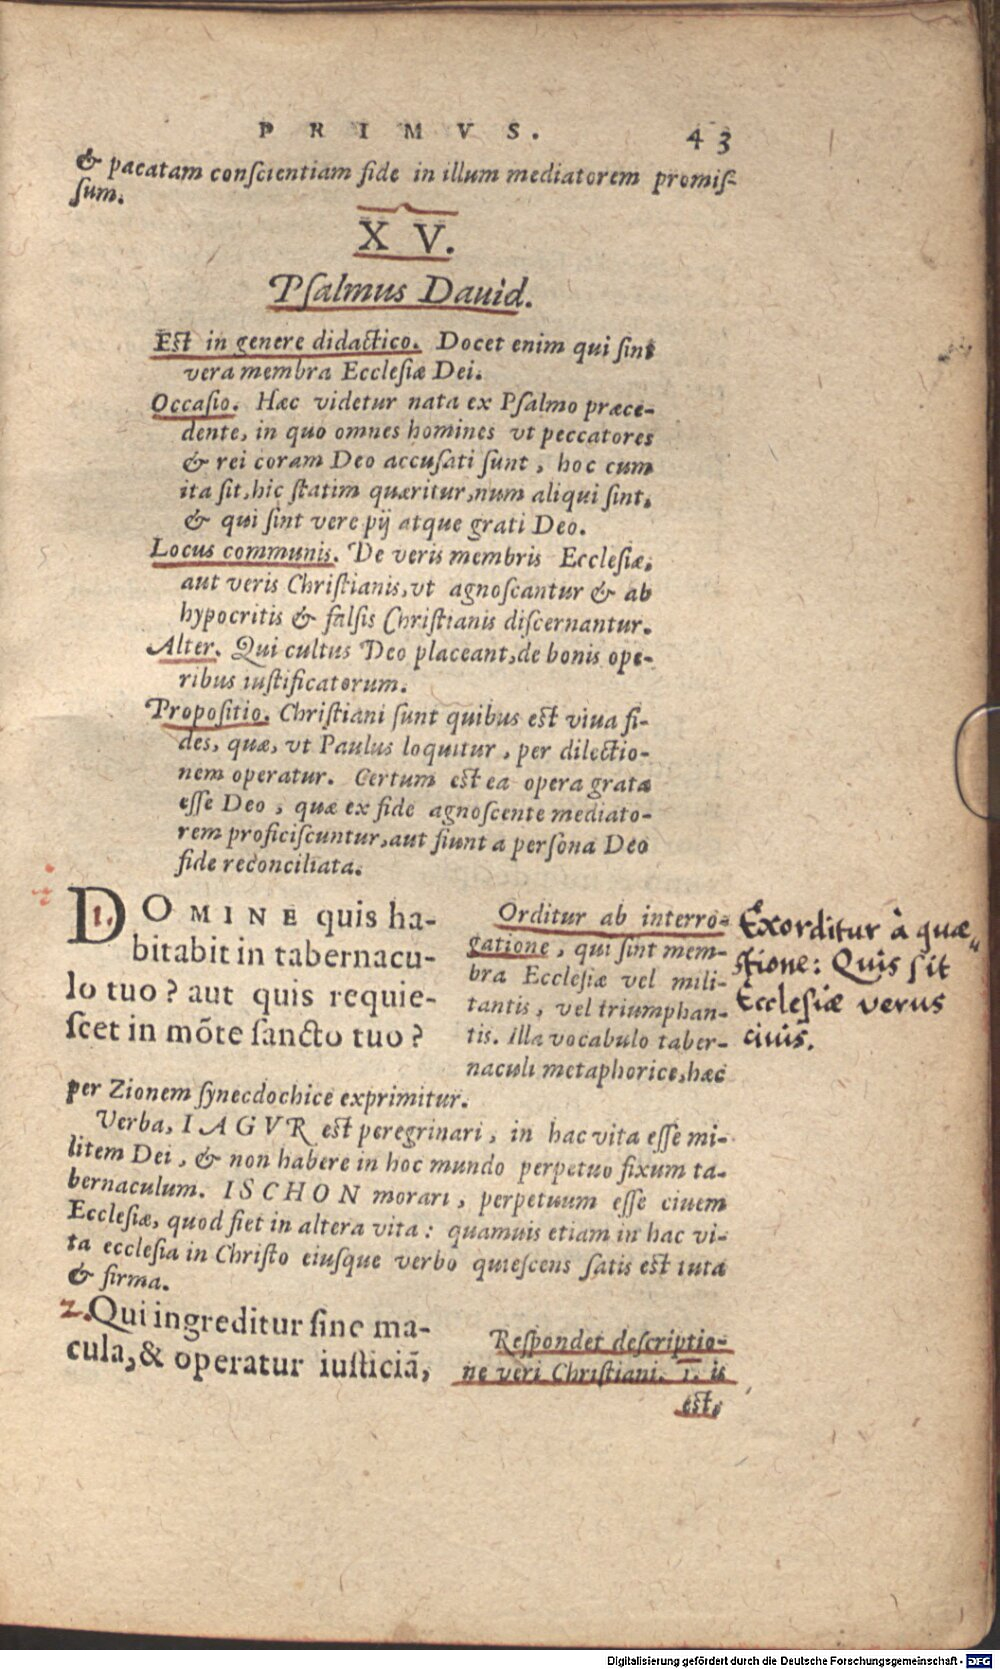 PRIMVS. 43
& pacatam conſcientiam fide in illum mediatorem promiſ-
ſum.
XV.
Pſalmus Dauid.
Eſt in genere didactico. Docet enim qui ſint
vera membra Eccleſiæ Dei.
Occaſio. Hæc videtur nata ex Pſalmo præce-
dente, in quo omnes homines vt peccatores
& rei coram Deo accuſati ſunt, hoc cum
ita ſit, hic ſtatim quæritur, num aliqui ſint,
& qui ſint vere pij atque grati Deo.
Locus communis. De veris membris Eccleſiæ,
aut veris Chriſtianis, vt agnoſcantur & ab
hypocritis & falſis Chriſtianis diſcernantur.
Alter. Qui cultus Deo placeant, de bonis ope-
ribus iuſtificatorum.
Propoſitio. Chriſtiani ſunt quibus eſt viua fi-
des, quæ, vt Paulus loquitur, per dilectio-
nem operatur. Certum eſt ea opera grata
eſſe Deo, quæ ex fide agnoſcente mediato-
rem proficiſcuntur, aut fiunt a perſona Deo
fide reconciliata.
1. DOMINE quis ha-
bitabit in tabernacu-
lo tuo? aut quis requie-
ſcet in mõte ſancto tuo?
Orditur ab interro-
gatione, qui ſint mem-
bra Eccleſiæ vel mili-
tantis, vel triumphan-
tis. Illa vocabulo taber-
naculi metaphorice, hæc
Exorditur à quæ-
ſtione: Quis ſit
Eccleſiæ verus
ciuis.
per Zionem ſynecdochice exprimitur.
Verba, IAGVR eſt peregrinari, in hac vita eſſe mi-
litem Dei, & non habere in hoc mundo perpetuo fixum ta-
bernaculum. ISCHON morari, perpetuum eſſe ciuem
Eccleſiæ, quod fiet in altera vita: quamuis etiam in hac vi-
ta eccleſia in Chriſto eiuſque verbo quieſcens ſatis eſt tuta
& firma.
2. Qui ingreditur ſine ma-
cula, & operatur iuſticiã,
Reſpondet deſcriptio-
ne veri Chriſtiani. 1. is
eſt,
Digitalisierung gefördert durch die Deutsche Forschungsgemeinschaft - DFG